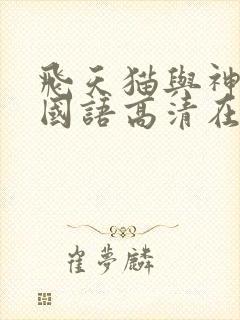 飛天猫與神
國語高清在
崔夢麟